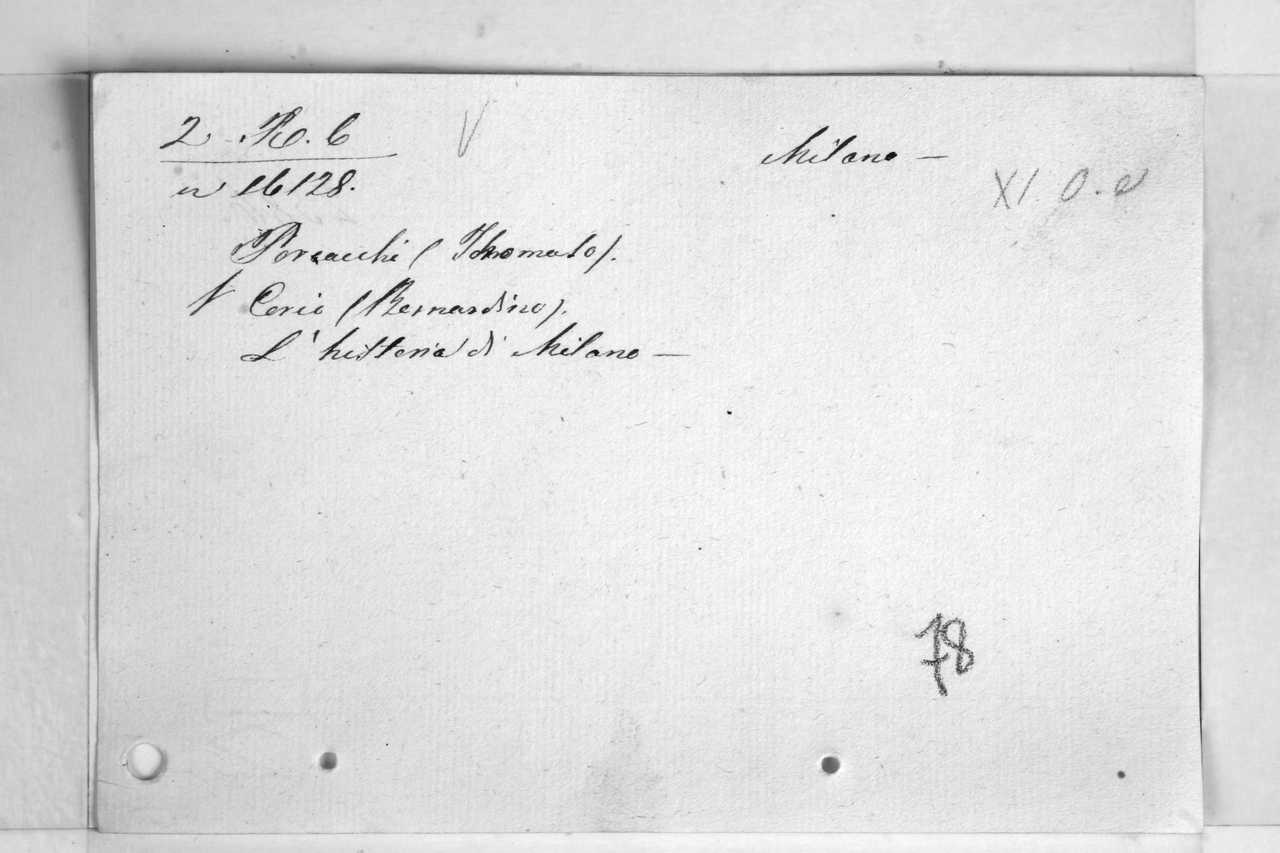 2 Ro. 6 V
Milano —
n 16128.
XI. O. e
Porcacchi (Thomaso).
V Corio (Bernardino).
L'historia di Milano —
78